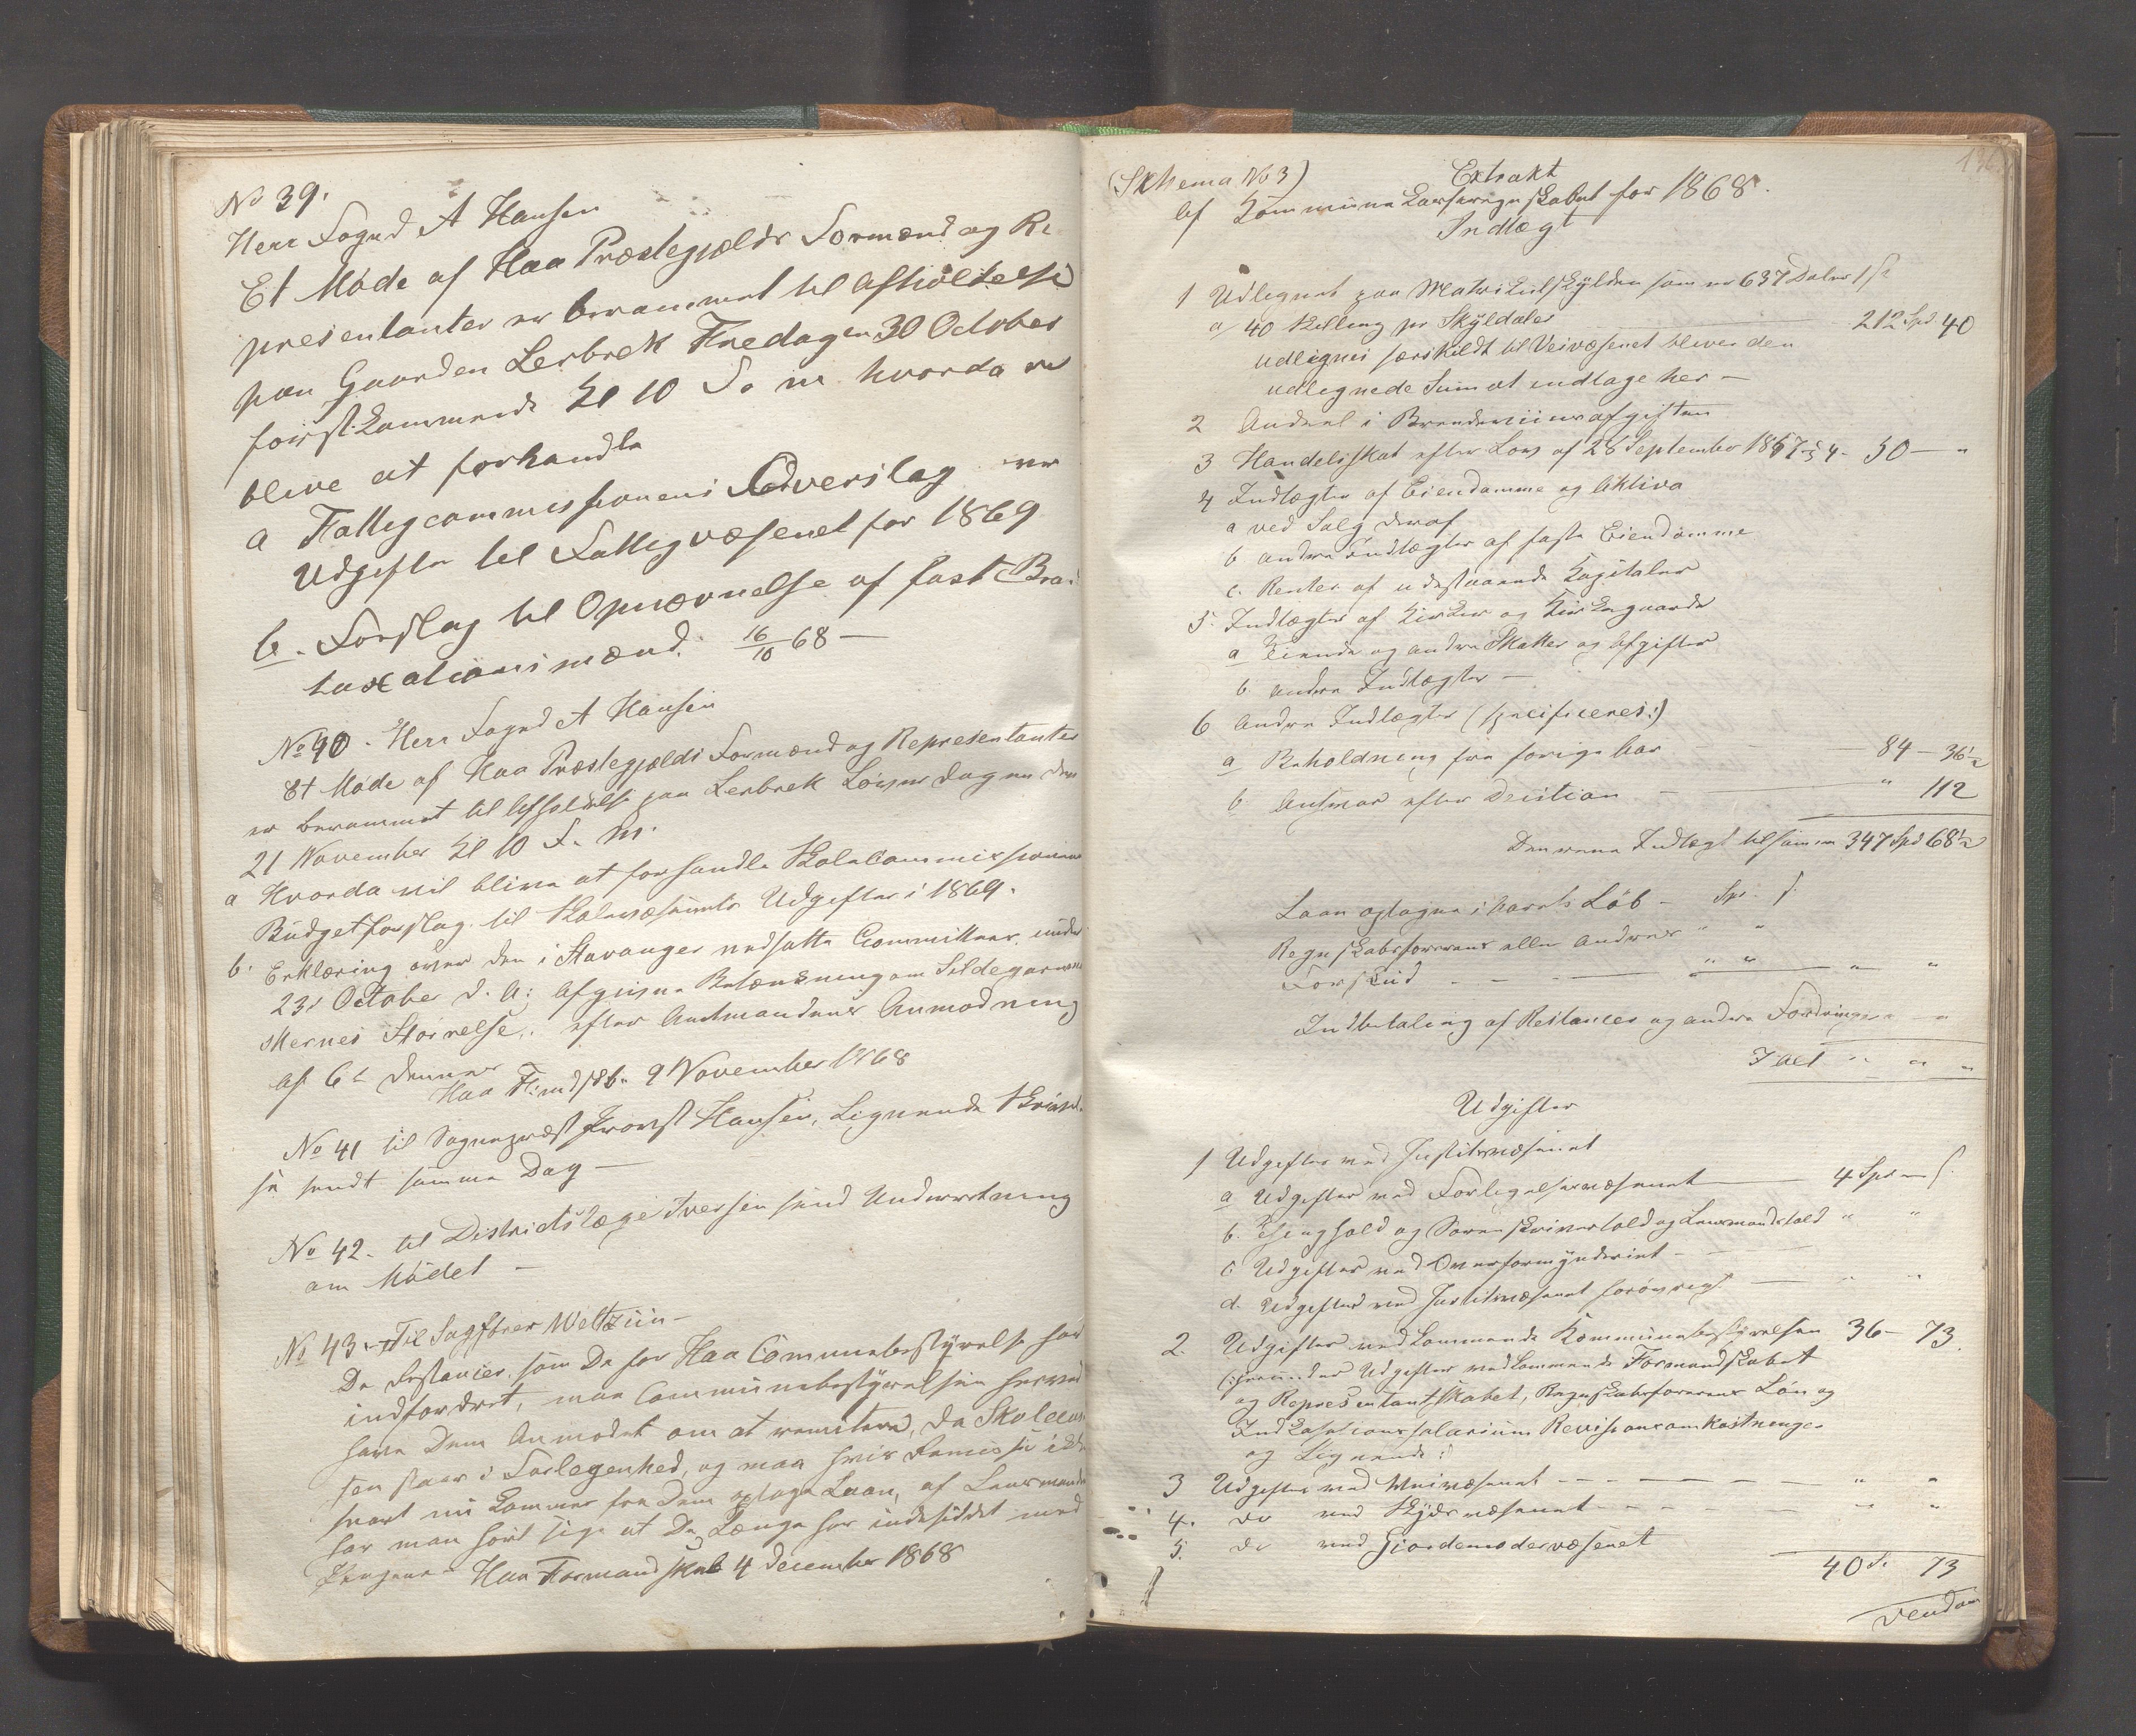 No 39.
Herr Foged A Hansen
Et Møde af Haa Præstegjælds Formænd og Re-
presentanter er berammet til Afholdelse
paa Gaarden Lerbrek Fredagen 30 October
førstkommende Kl 10 Fo m hvorda
blive at forhandle
a Fattigcommissionens Overslag over
Udgifter til Fattigvæsenet for 1869
b. Forslag til Opnævnelse af faste Bra.
taxationsmænd. 16/10 68 —
No 40. Herr Foged A Hansen
Et Møde af Haa Præstegjælds Formænd og Representanter
er berammet til Afholdelse paa Lerbrek Løverdagen den
21 November Kl 10 F. M.
a Hvorda vil blive at forhandle Skolecommissionens
Budgetforslag til Skolevæsenets Udgifter i 1869.
b. Erklæring over den i Stavanger nedsatte Committees under
23de October d. A: afgivne Betænkning om Sildegarnma
skernes Størrelse, efter Amtmandens Anmodning
af 6te dennes
Haa Fmdskb. 9 November 1868
No 41 til Sogneprest Provst Hansen, Lignende Skrivel-
se sendt samme Dag —
No 42. til Districtslæge Iversen send Underretning
om Mødet —
No 43. Til Sagfører Weltzün —
De Restancer, som De for Haa Communebestyrelse har
indfordret, maa Communebestyrelsen herved
have Dem Anmodet om at remitere, da Skolecas
sen staar i Forlegenhed, og maa hvis Remisse ikke
snart nu kommer fra Dem optage Laan, af Lensmanden
har man hørt sige at De længe har indesiddet med
Pengene — Haa Formandskab 4 December 1868
(Skhema No 3) Extrakt
af Kommunekasseregnskabet for 1868.
Indtægt
1 Udlignet paa Matrikulskylden som er 637 Daler 1 ß
a 40 Skilling pr Skyldaler — 212 Spd 40
udlignes særskildt til Veivæsenet bliver den
udlignede Sum at indtage her —
2 Andeel i Brendeviinsafgiften
3 Handelsskat efter Lov af 28 September 1857 § 4 - 50 — "
4 Indtægter af Eiendomme og Aktiva
a ved Salg deraf
b andre Indtægter af faste Eiendomme
c. Renter af udestaaende Kapitaler
5. Indtægter af Kirker og Kirkegaarde
a Tiende og andre Skatter og Afgifter
b. andre Indtægter —
6 Andre Indtægter (specificeres:)
a Beholdning fra forige Aar — 84 — 36½
b Ansvar efter Decition — " 112
Denne Indtægt tilsammen 347 Spd 68½
Laan optagne i Aarets Løb — Spd. ß.
Regnskabsførerens eller Andres " "
Forskud - - - " " " "
Indbetaling af Restancer og andre Fordringer " "
I alt " " "
Udgifter
1 Udgifter ved Justitsvæsenet
a Udgifter ved Forligelsesvæsenet — 4 Spd — ß.
b. Thinghold og Sorenskrivertold og Lensmandstold " "
c Udgifter ved Overformynderiet - -
d. Udgifter ved Justitsvæsenet forøvrigt — " "
2. Udgifter vedkommende Kommunebestyrelsen 36 — 73.
(:herunder Udgifter vedkommende Formandskabet
og Representantskabet, Regnskabsførerens Løn og
Indkasationssalarium Revisionsomkostninger
og Lignende:)
3 Udgifter ved Veivæsenet - - - — " "
4. do ved Skydsvæsenet - - - — " "
5. do ved Giordemodervæsenet
40 Sp. 73
Vend om